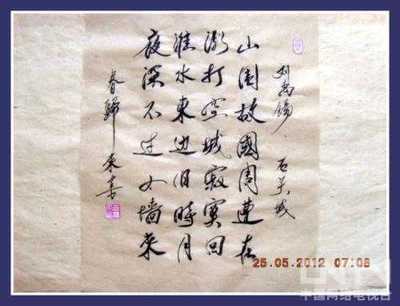 刘禹锡 石头城
山围故國周遭在
潮打空城寂寞回
淮水東边旧時月
夜深还过女墙来
春歸
25.05.2012 07:08
中国网络电视台